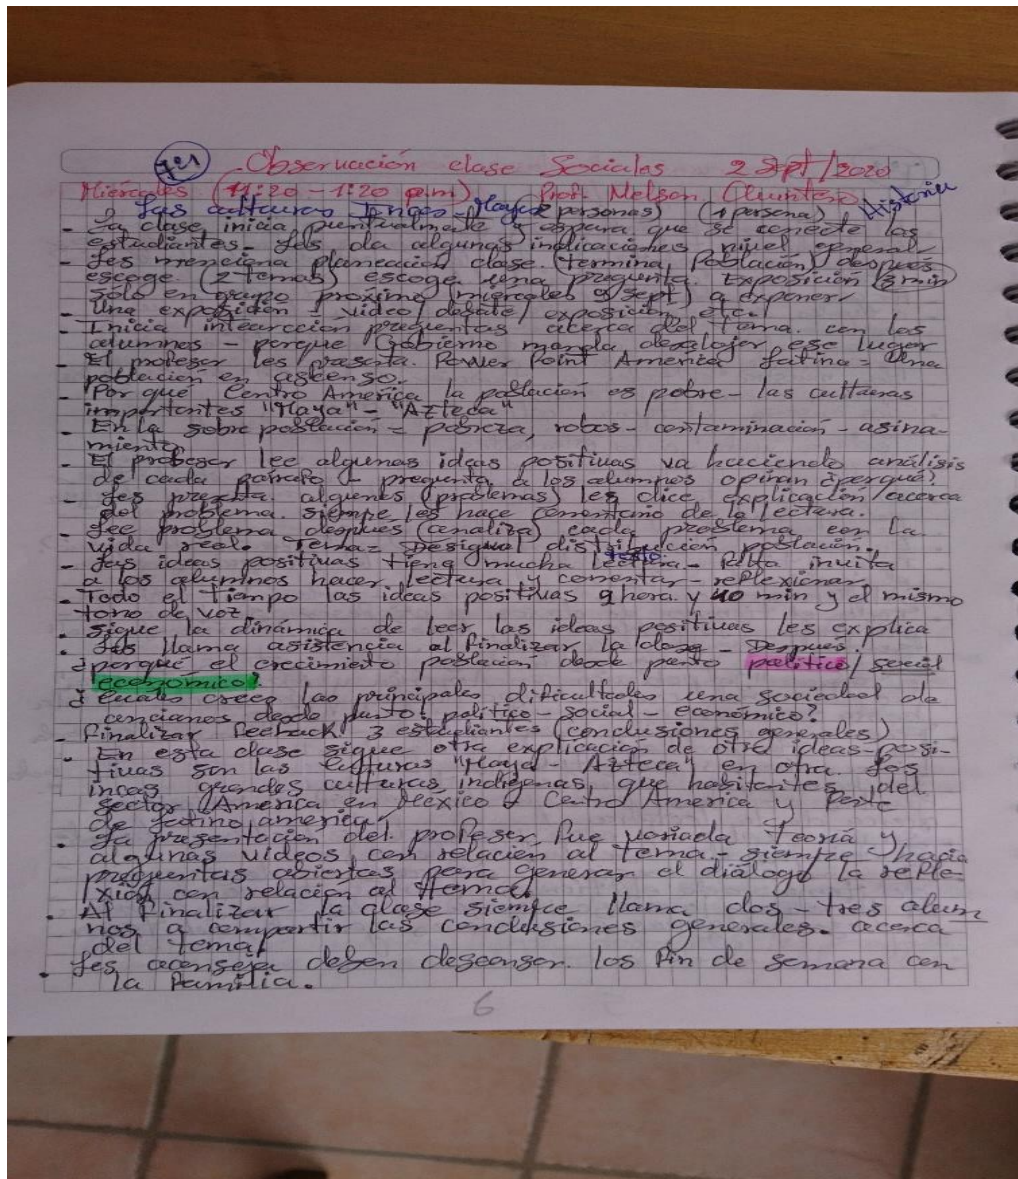 701 Observación clase Sociales 2 Sept/2020
Miércoles (11:20 - 1:20 pm) Prof. Nelson Quintero Historia
Las culturas Incas - Mayas (2 personas) (1 persona)
- La clase inicia puntualmente y espera que se conecte los
estudiantes - les da algunas indicaciones nivel general
- Les menciona planeación clase. (termina Población) después
escoge (2 temas) escoge una pregunta. Exposición (3 min
sólo en grupo próximo (miercoles 9 sept) a exponer
- Una exposición - video/ debate/ exposición etc.
- Inicia interacción preguntas acerca del tema. con los
alumnos - porque Gobierno manda desalojar ese lugar
- El profesor les presenta. Power Point America Latina = Una
población en ascenso.
- Por qué Centro América la población es pobre - las culturas
importantes "Maya" - "Azteca"
- En la sobre población = pobreza, robos - contaminación - asina-
miento
- El profesor lee algunas ideas positivas va haciendo análisis
de cada párrafo - pregunta a los alumnos opinan ¿porqué?
- Les presenta algunos (problemas) les dice explicación/acerca
del problema. siempre les hace comentario de la lectura.
- Lee problema después (analiza) cada problema con la
vida real. Tema = Desigual distribución población.
- Las ideas positivas tiene mucha texto lectura - falta invita
a los alumnos hacer lectura y comentar - reflexionar
- Todo el tiempo las ideas positivas 1 hora y 40 min y el mismo
tono de voz
- Sigue la dinámica de leer las ideas positivas les explica
- Les llama asistencia al finalizar la clase - Después.
¿porqué el crecimiento población desde punto politico/ social
economico?
¿Cuáles crees las principales dificultades una sociedad de
ancianos desde punto: político - social - económico?
- Finalizar feeback 3 estudiantes (conclusiones generales)
- En esta clase sigue otra explicación de otra ideas - posi-
tivas son las culturas "Maya - Azteca" en otra. Los
incas grandes culturas indigenas, que habitantes del
sector América en México y Centro America y parte
de latino america.
- La presentación del profesor fue variada teoría y
algunas videos, con relación al tema - siempre hacia
preguntas abiertas para generar el diálogo la refle-
xión con relación al tema
- Al finalizar la clase siempre llama dos - tres alum
nos a compartir las conclusiones generales. acerca
del tema
- Les aconseja deben descansar. los fin de semana con
la familia.
6